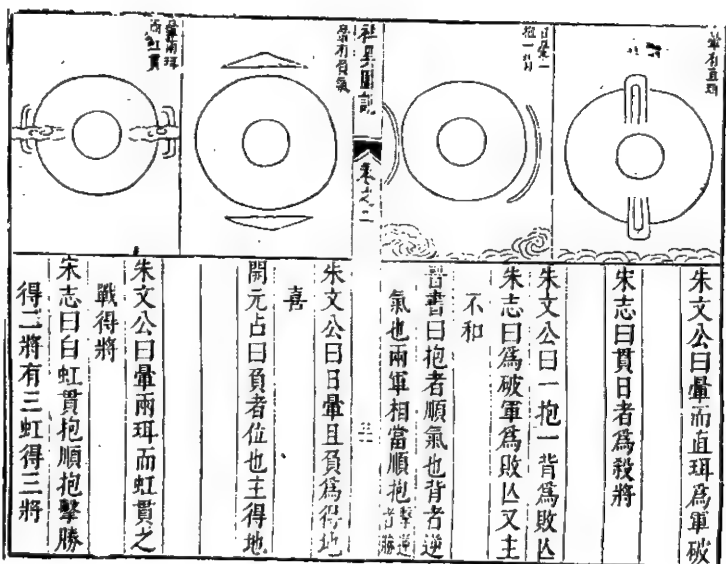 暈有直珥
朱文公曰暈而直珥爲軍破
宋志曰貫日者爲殺將
日暈一
抱一背
朱文公曰一抱一背爲敗亾
朱志曰爲破軍爲敗亾又主
不和
晉書曰抱者順氣也背者逆
氣也兩軍相當順抱擊逆者勝
祥異圖說
卷之二
暈有負氣
朱文公曰日暈且負爲得地
喜
開元占曰負者位也主得地
暈兩珥
而虹貫
朱文公曰暈兩珥而虹貫之
戰得將
宋志曰白虹貫抱順抱擊勝
得二將有三虹得三將